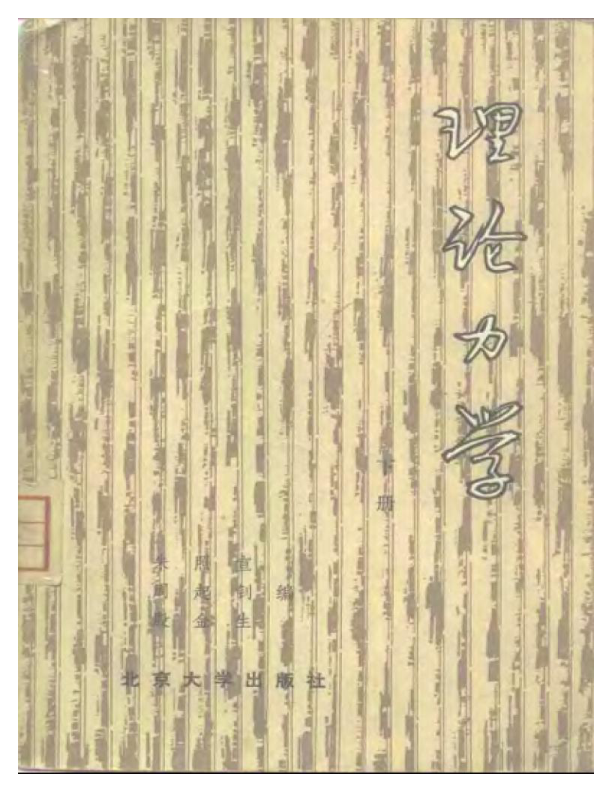 理论力学
下册
朱照宣
周起钊 编
殷金生
北京大学出版社